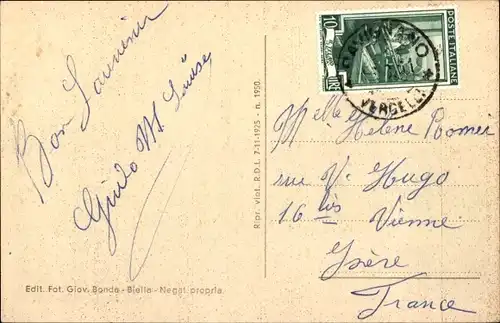 Bon Souvenir
Guido M. Louise
Edit. Fot. Giov. Bonda - Biella - Negat. propria
Ripr. viet. R.D.L. 7-11-1925 - n. 1950.
10
POSTE ITALIANE
VERCELLI
Melle Helene Romer
rue V. Hugo
16 bis Vienne
Isère
France